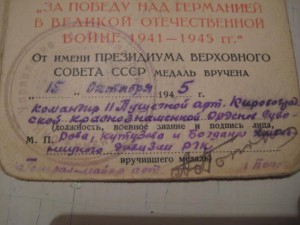 "ЗА ПОБЕДУ НАД ГЕРМАНИЕЙ
В ВЕЛИКОЙ ОТЕЧЕСТВЕННОЙ
ВОЙНЕ 1941—1945 гг."
ОТ ИМЕНИ ПРЕЗИДИУМА ВЕРХОВНОГО
СОВЕТА СССР МЕДАЛЬ ВРУЧЕНА
15 Октября 1945
командир 11 Пушечной арт. Кировоград
ской краснознаменной Ордена Суво
(должность, военное звание и подпись лица,
М. П. рова, кутузова и Богдана
дивизии РГК
вручившего медаль)
Генерал-майор арт